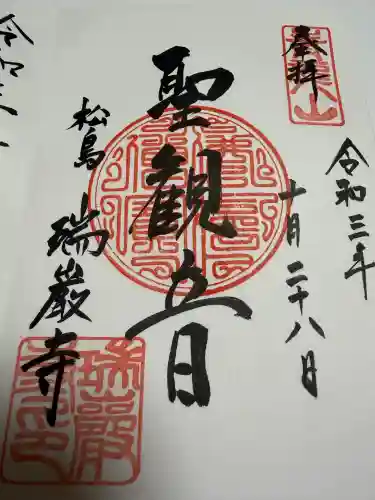 登拝
令和三年
十月二十八日
聖観音
松島
瑞巌寺
令和三